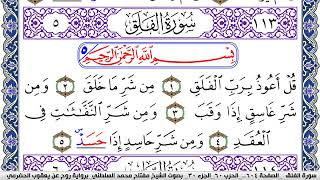 ١١٣ سُورَةُ الفَلَقِ ٥
بِسْمِ ٱللَّهِ ٱلرَّحْمَٰنِ ٱلرَّحِيمِ
قُلْ أَعُوذُ بِرَبِّ ٱلْفَلَقِ ١ مِن شَرِّ مَا خَلَقَ ٢ وَمِن
شَرِّ غَاسِقٍ إِذَا وَقَبَ ٣ وَمِن شَرِّ ٱلنَّفَّٰثَٰتِ فِى
ٱلْعُقَدِ ٤ وَمِن شَرِّ حَاسِدٍ إِذَا حَسَدَ ٥
سورة الفلق ٦٠٤ الحزب ٦٠ الجزء ٣٠ بصوت الشيخ مفتاح محمد السلطني برواية روح عن يعقوب الحضرمي